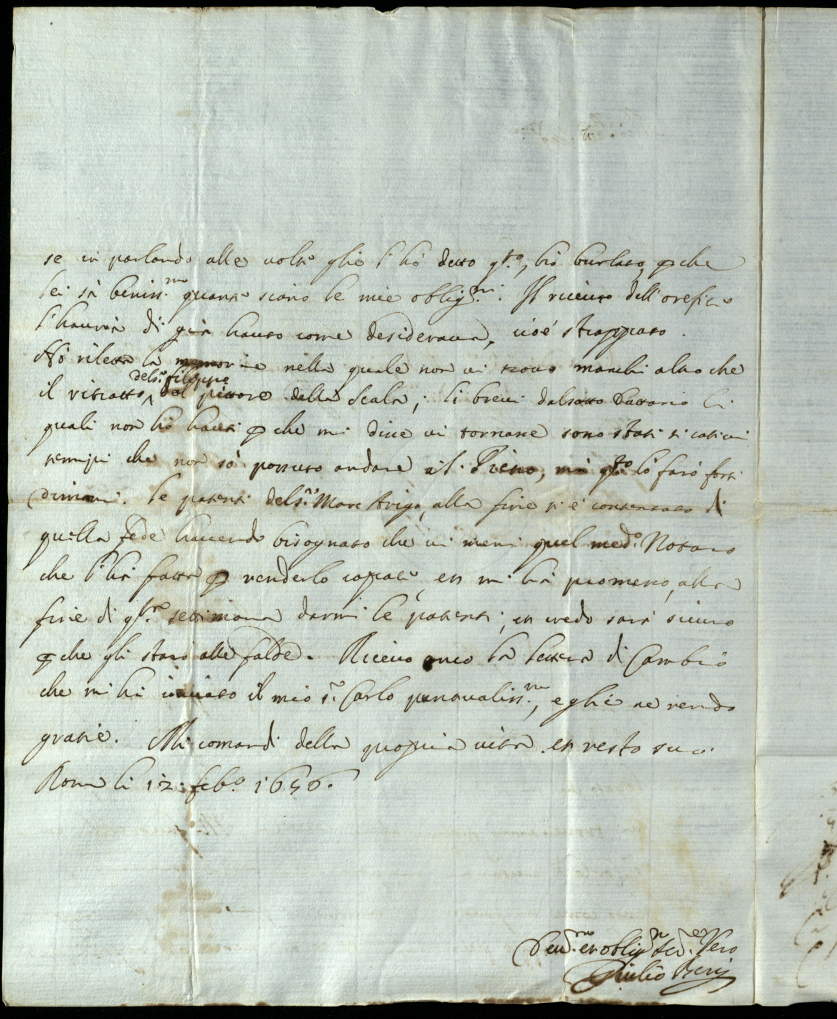 se in parlando alle volte glie l'hò detto q.to, hò burlato, p che
lei sà beniss.mo quante siano le mie oblig.ni. Il riceuto dell'orefice
l'haverà di già hauto come desideraua, cioè strappato.
Hò riletta la memoria nella quale non ui trouo manchi altro che
il ritratto del s.r Filippo pittore della Scala, i brevi dal Dattario li
quali non hò hauti p che mi dice ui tornare sono stati si catiui
tempi che non sò possuto andare, mà q.to lo farò forsi
dimani. Le patenti del s.r Marc Arigo, alla fine si è contentato di
quella fede hauendo bisognato che ui meni quel med.o Notaro
che l'hà fatta p renderlo capace et mi hà promesso, alla
fine di q.ta settimana darmi le patenti, et credo sarà sicuro
p che gli starò alle falde. Riceuo anco la lettera di Cambio
che mi hà inuiato il mio s.r Carlo puntualiss.mo, e glie ne rendo
gratie. Mi comandi della propria uita et resto suo.
Roma li 12 feb.o 1656.
Deu.mo et oblig.mo Ser.re Vero
Giulio